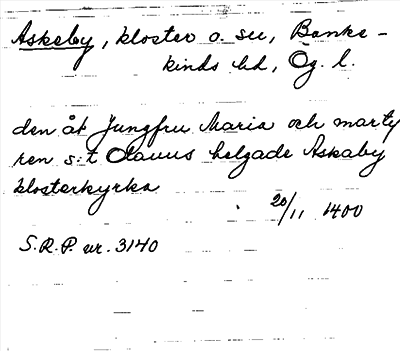 Askeby, kloster o. su, Banke-
kinds hd, Ög. l.
den åt Jungfru Maria och marty
ren s:t Olauus helgade Askaby
klosterkyrka
20/11 1400
S.R.P. nr. 3140